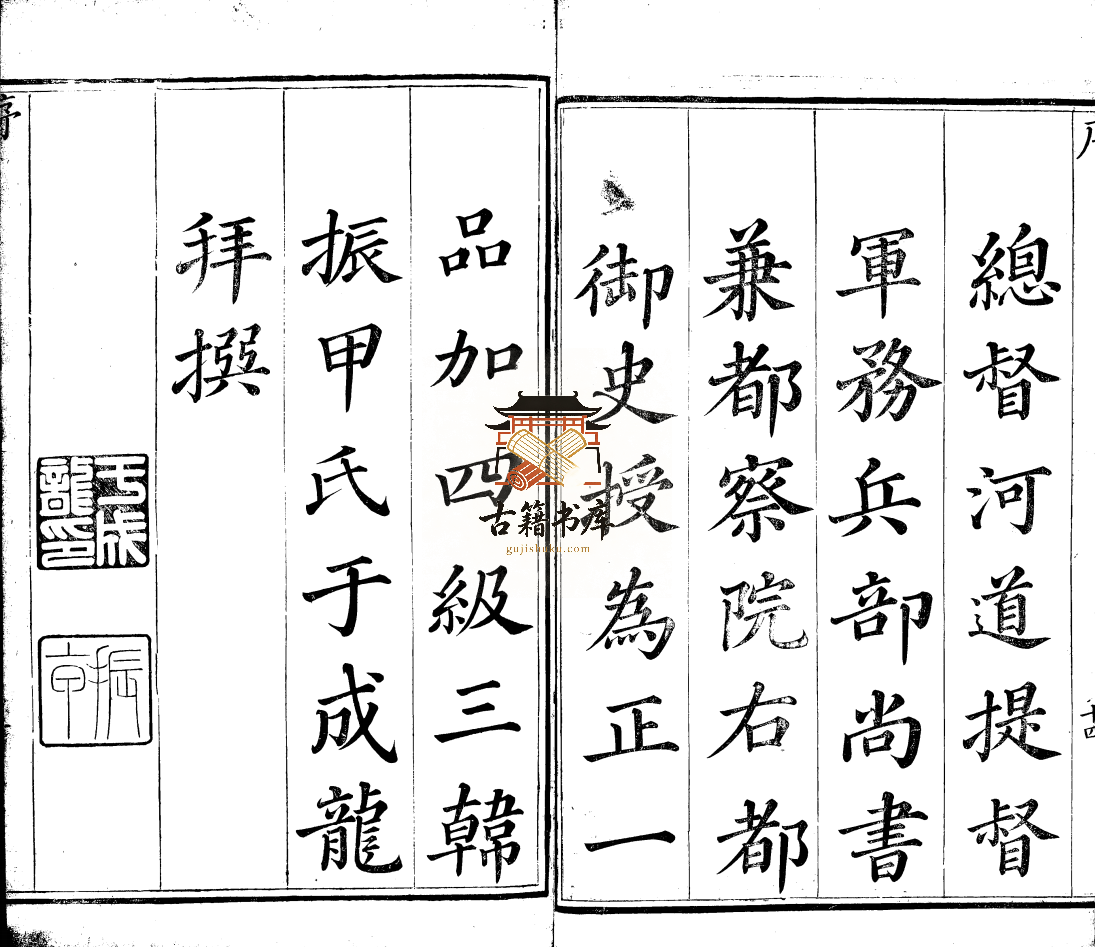 總督河道提督
軍務兵部尚書
兼都察院右都
御史授為正一
品加四級三韓
振甲氏于成龍
拜撰
于成龍印
振甲
序
古籍书库
gujishuku.com
十四